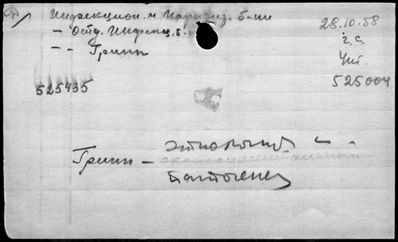 Инфекцион. и Паразиз. б-ни
28.10.58
– Отд. Инфекц. б.
г. с.
– – Грипп
Чит.
525435
525004
Грипп – этиология
патогенез